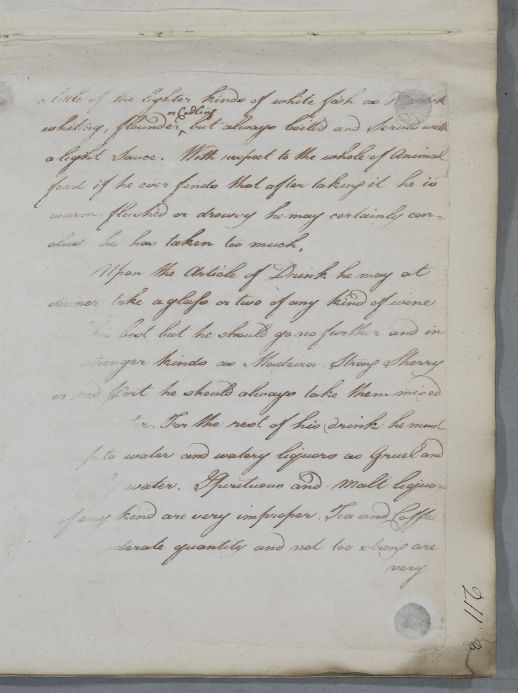 a little of the lighter kinds of white fish as
or Codling
whiting, flounder, but always boiled and Served with
a light Sauce. With respect to the whole of Animal
food if he ever finds that after taking it he is
warm, flushed or drowsy he may certainly con=
clude he has taken too much.
Upon the Article of Drink he may at
dinner take a glass or two of any kind of wine
best but he should go no further and in
stronger kinds as Madeira, Strong Sherry
or red Port he should always take them mixed
For the rest of his drink he must
to water and watery liquors as Gruel and
water. Spirituous and Malt liquo=
of any kind are very improper. Tea and Coffe
quantity and not too strong are
very
211